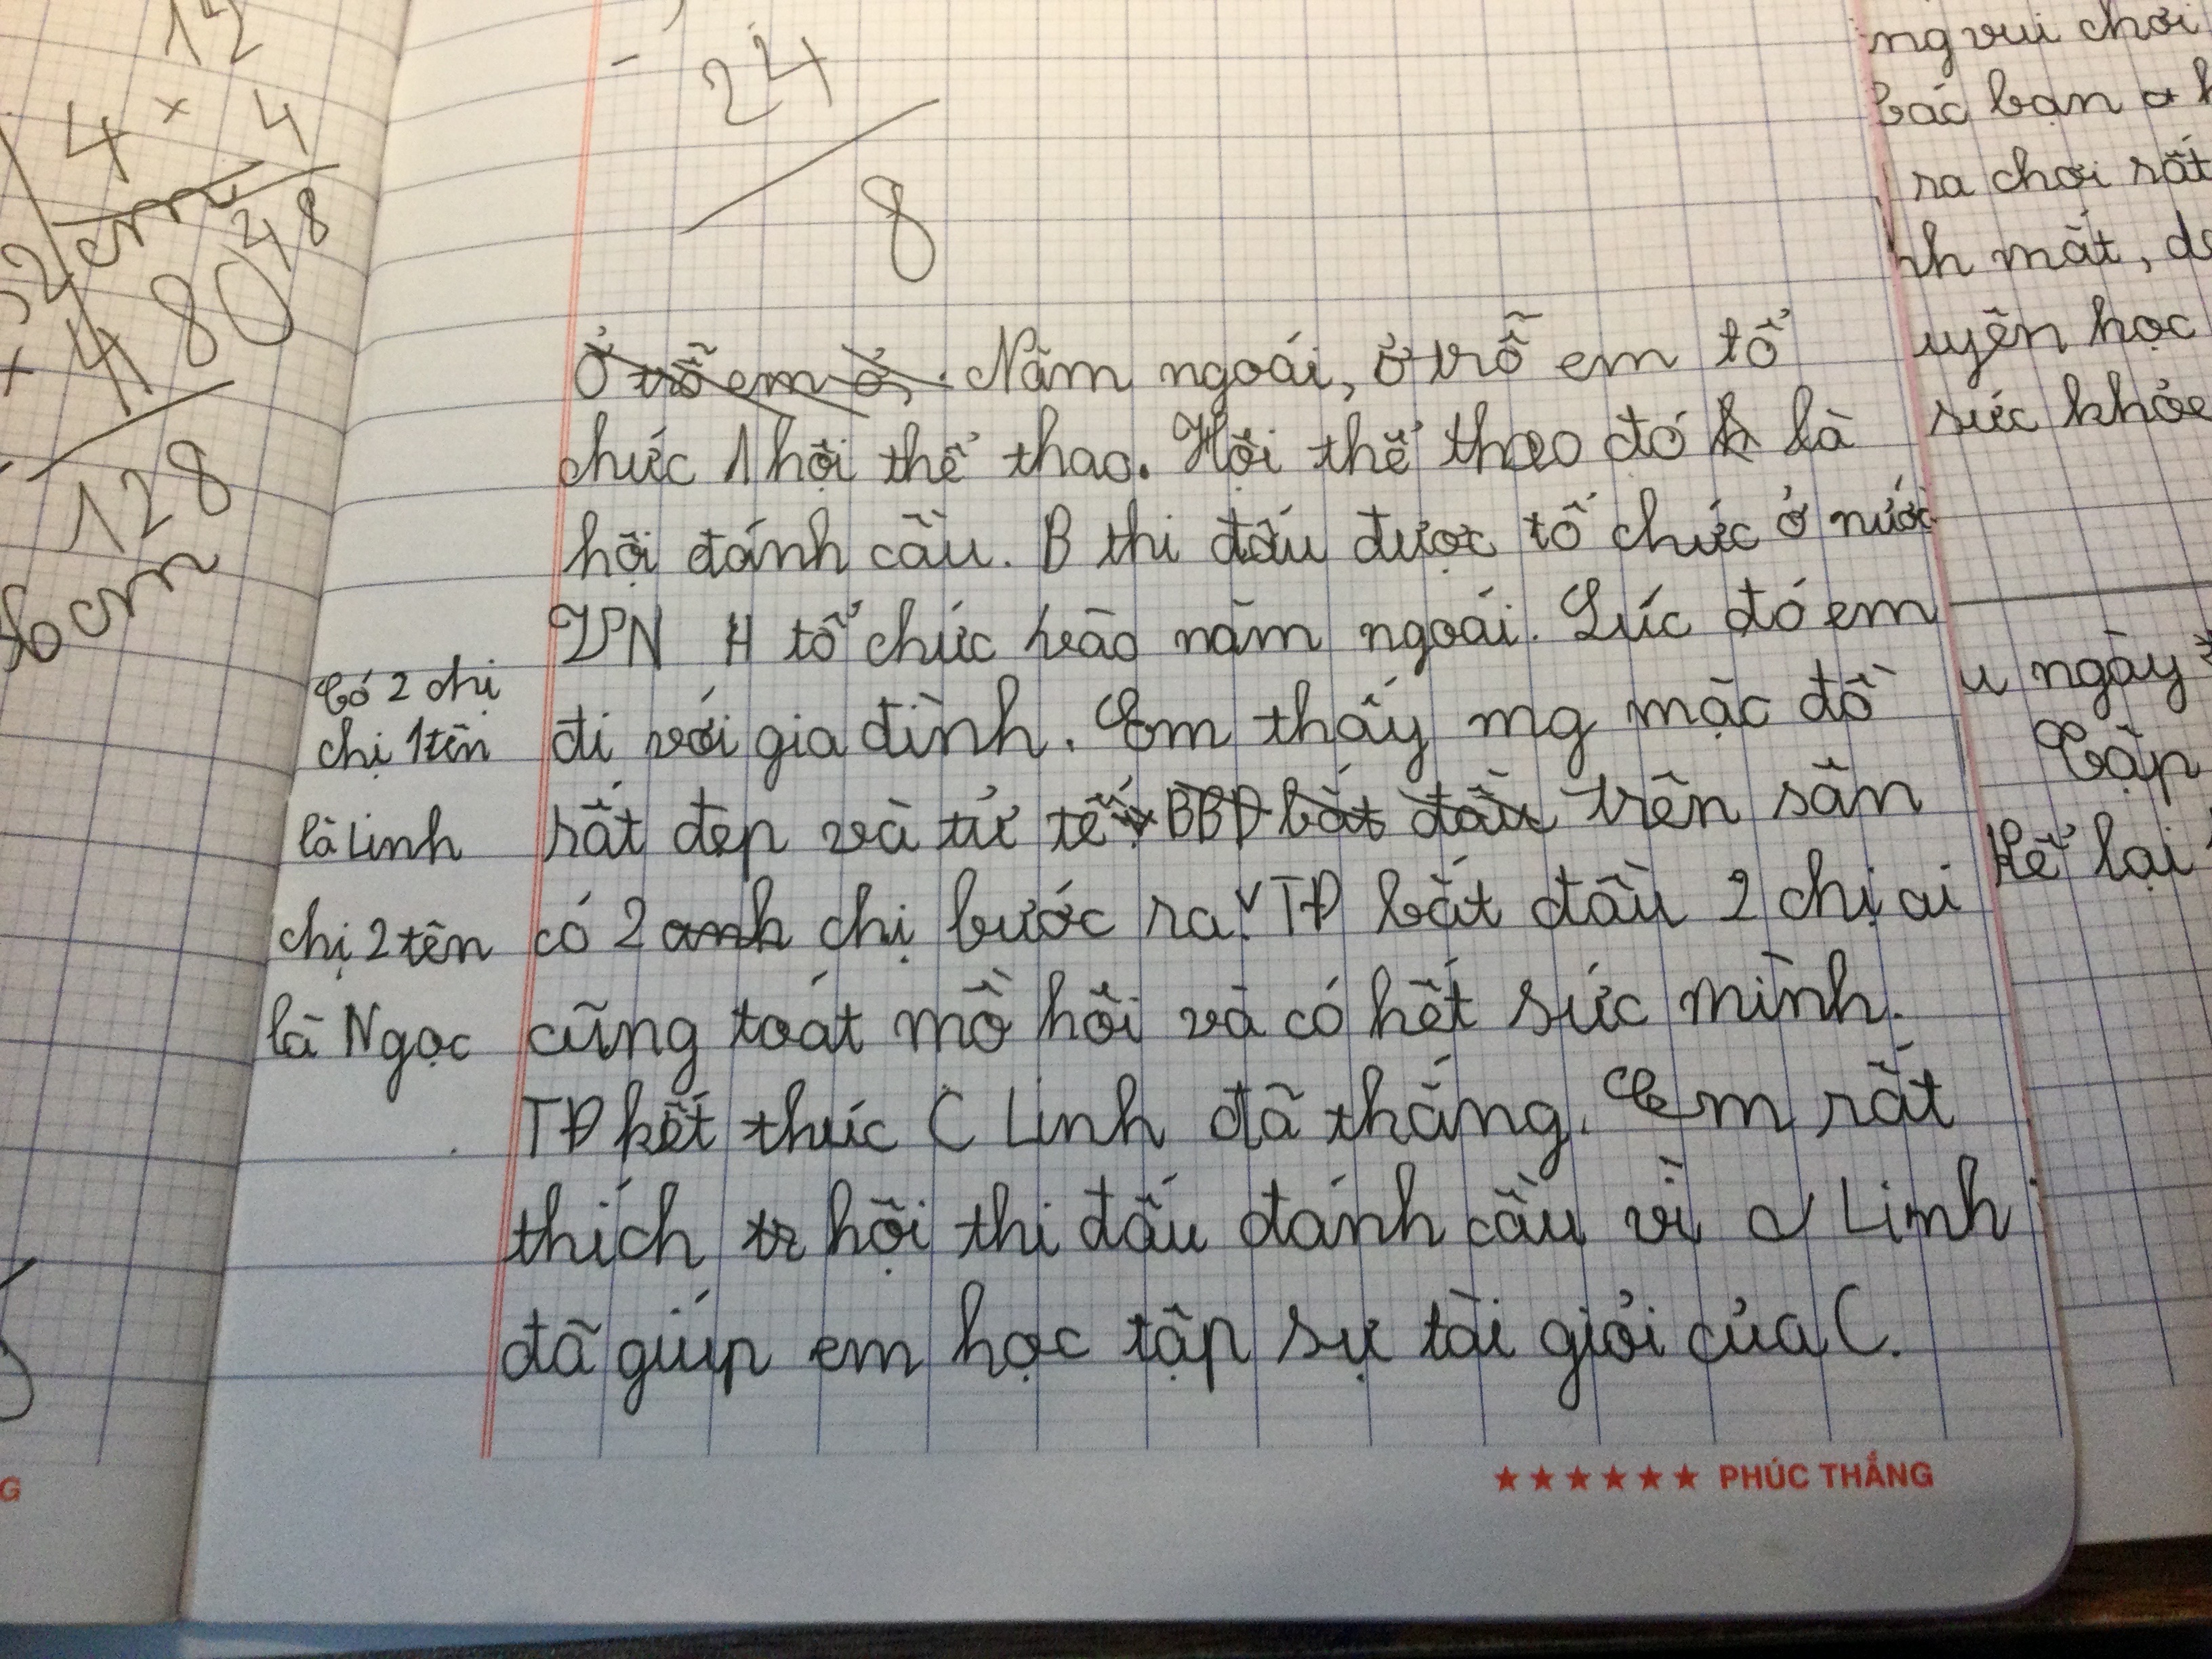 12
4 × 4
cm
48
480
×
128
cm
24
8
Ở trỗ em ở, Năm ngoái, ở trỗ em tổ
chức 1 hội thể thao. Hội thể thao đó là
hội đánh cầu. B thi đấu được tổ chức ở nước
VN H tổ chức vào năm ngoái. Lúc đó em
đi với gia đình. Em thấy mg mặc đồ
rất đẹp và tử tế BBD bắt đầu trên sân
có 2 anh chị bước ra. TĐ bắt đầu 2 chị ai
cũng toát mồ hôi và có hết sức mình.
TĐ kết thúc C Linh đã thắng. Em rất
thích tr hội thi đấu đánh cầu vì c Linh
đã giúp em học tập sự tài giỏi của C.
Có 2 chị
chị 1 tên
là Linh
chị 2 tên
là Ngọc
★★★★★★ PHÚC THẮNG
G
ng vui chơi
các bạn
ra chơi rất
nh mát,
uyên học
sức khỏe
u ngày
Cặp
Kể lại